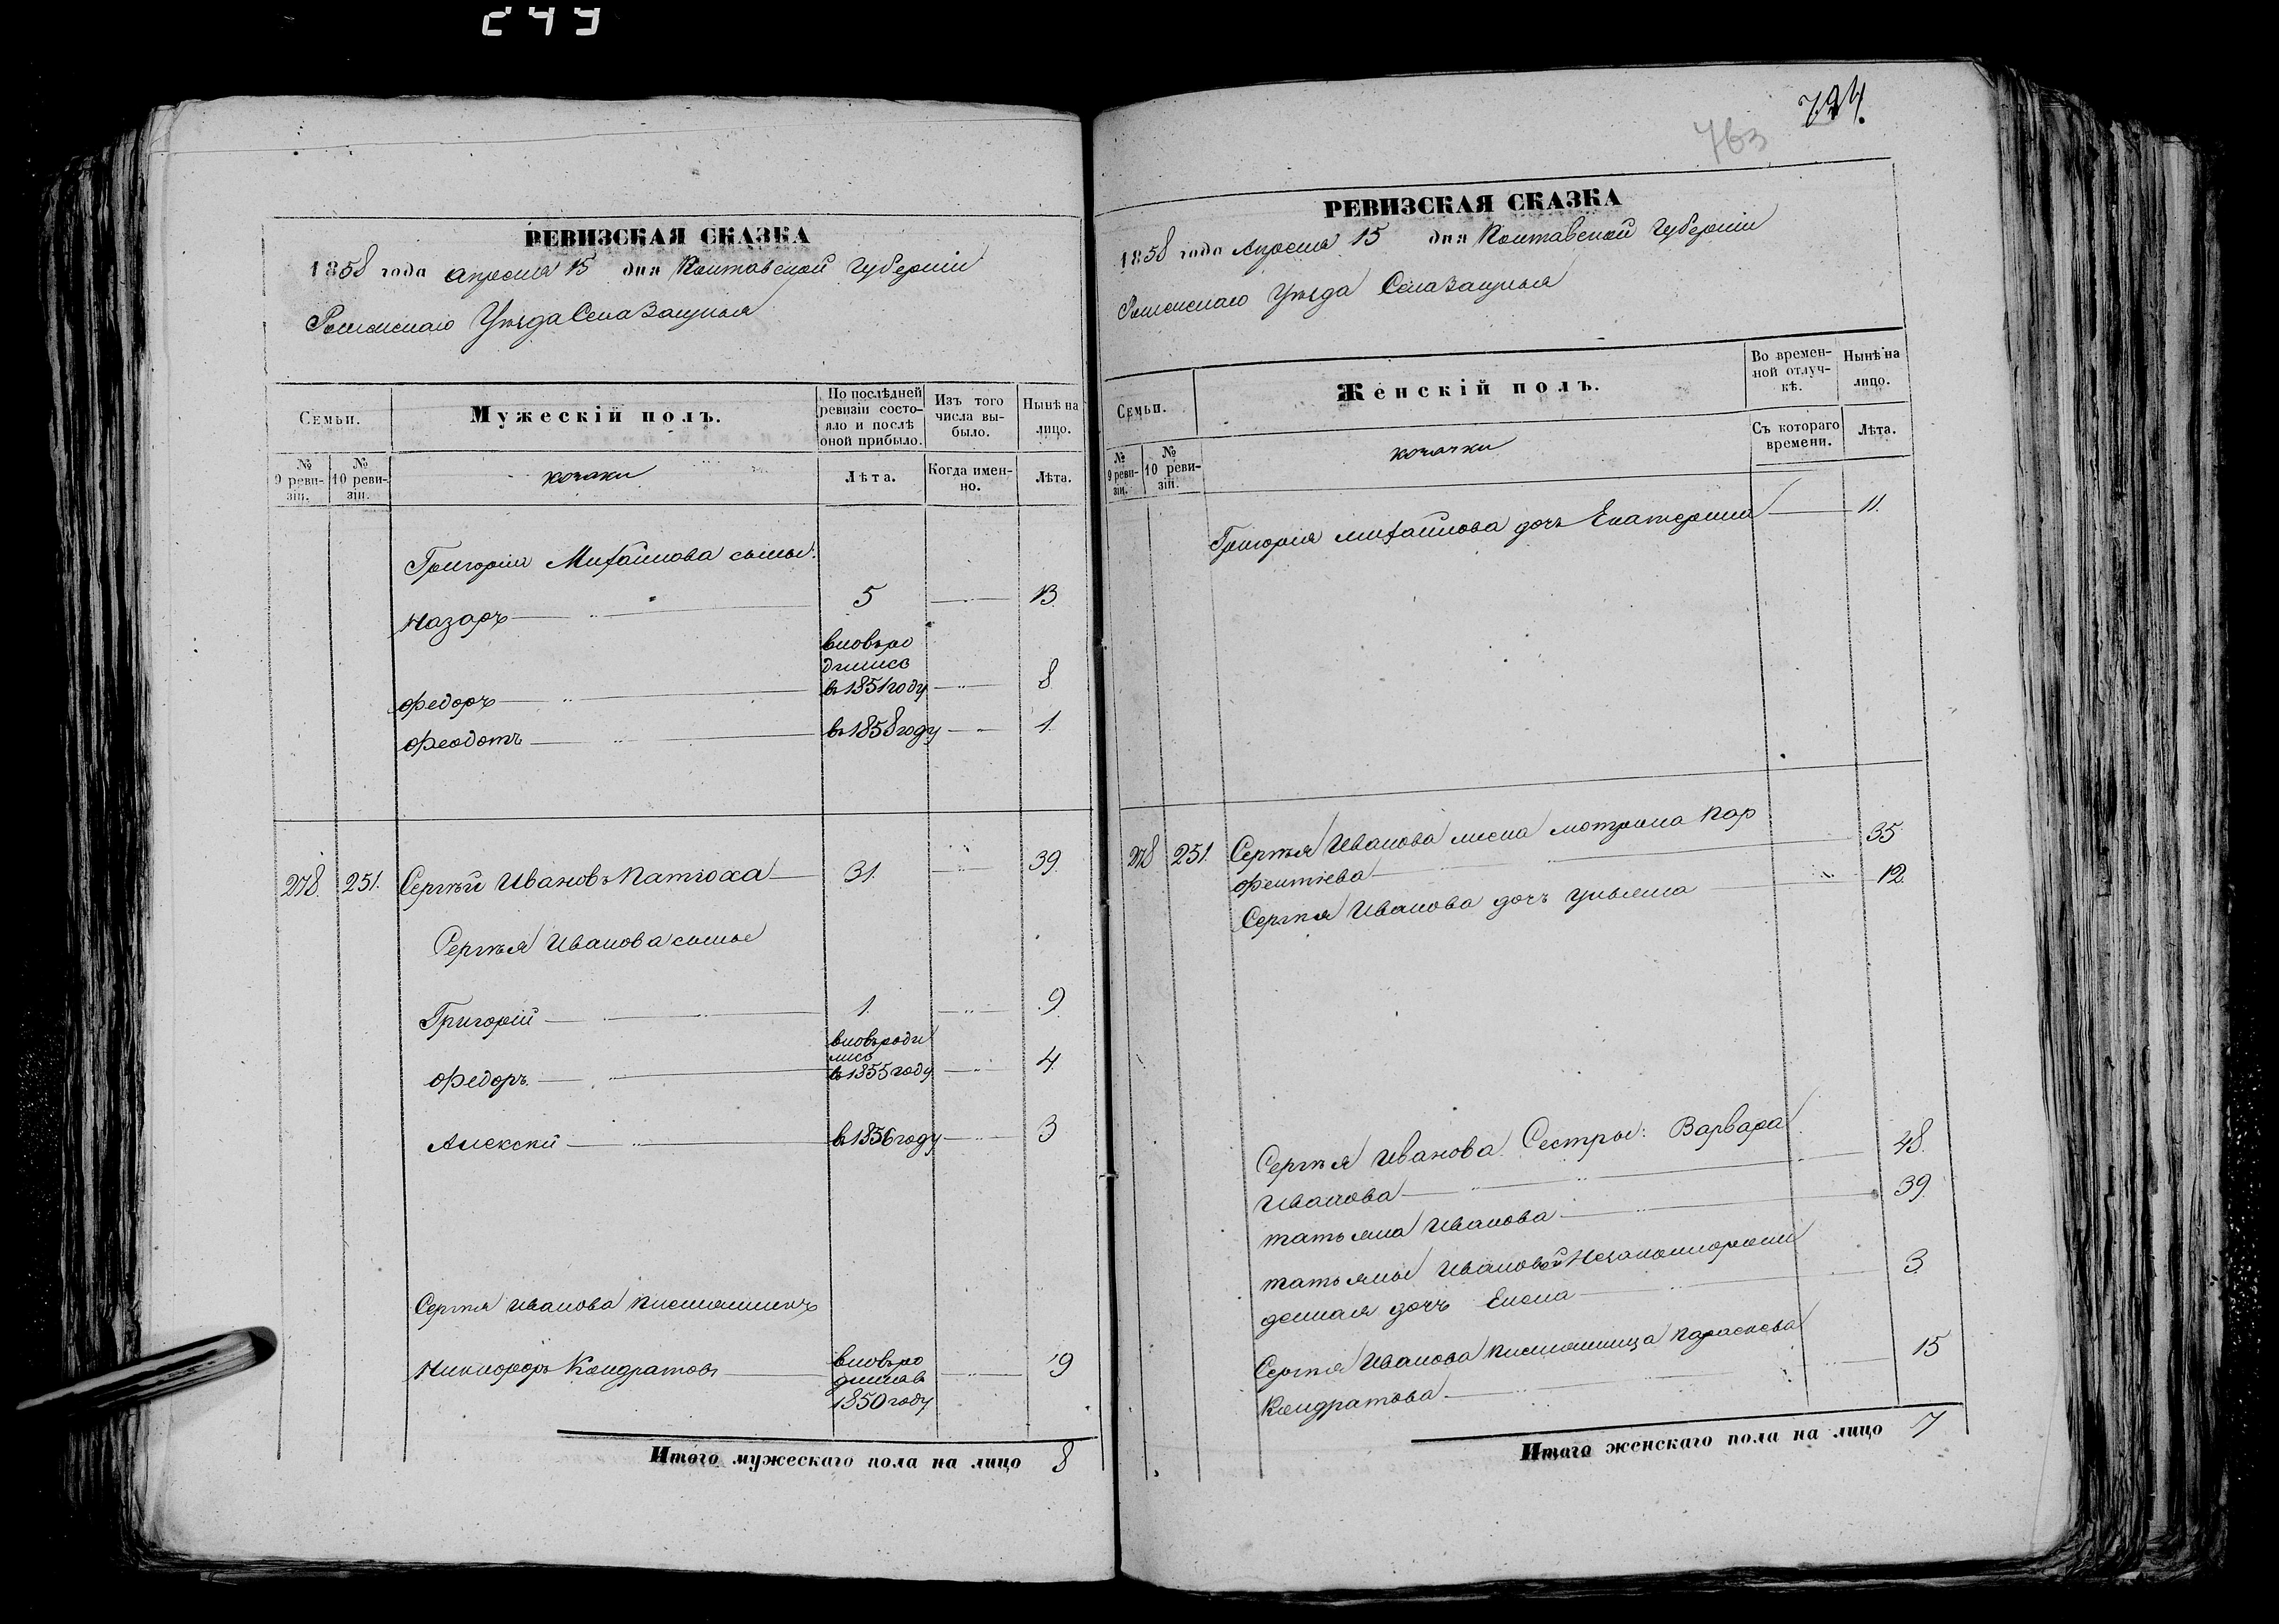 249
РЕВИЗСКАЯ СКАЗКА
1858 года Апреля 15 дня Полтавской Губерніи
Роменскаго Уѣзда Села
Семьи.
Мужескій полъ.
По послѣдней ревизіи состояло и послѣ оной прибыло.
Изъ того числа выбыло.
Нынѣ на лицо.
№ 9 ревизіи.
№ 10 ревизіи.
козаки
Лѣта.
Когда именно.
Лѣта.
Григорія Михайлова сыны:
Назаръ 5 13
вновь родились
Федоръ в 1851 году 8
Феодотъ в 1858 году 1.
278. 251. Сергѣй Ивановъ Патюха 31. 39.
Сергѣя Иванова сыны
Григорій 1. 9
вновь родились
Федоръ в 1855 году 4.
Алексѣй в 1856 году 3
Сергѣя Иванова племянникъ
Никифоръ Кондратовъ вновь ро 9
дился в
1850 году
Итого мужескаго пола на лицо 8
763
724.
РЕВИЗСКАЯ СКАЗКА
1858 года Апреля 15 дня Полтавской Губерніи
Роменскаго Уѣзда Села
Семьи.
Женскій полъ.
Во временной отлучкѣ.
Нынѣ на лицо.
№ 9 ревизіи.
№ 10 ревизіи.
козачки
Съ котораго времени.
Лѣта.
Григорія Михайлова дочь Екатерина 11.
278 251. Сергѣя Иванова жена Мотрона Пар
фентіева 35
Сергѣя Иванова дочь Ульяна 12.
Сергѣя Иванова Сестры: Варвара
Иванова 48.
Татьяна Иванова 39.
Татьяны Ивановой Незаконнорож
денная дочь Елена 3
Сергѣя Иванова племянница Параскева
Кондратова 15
Итого женскаго пола на лицо 7